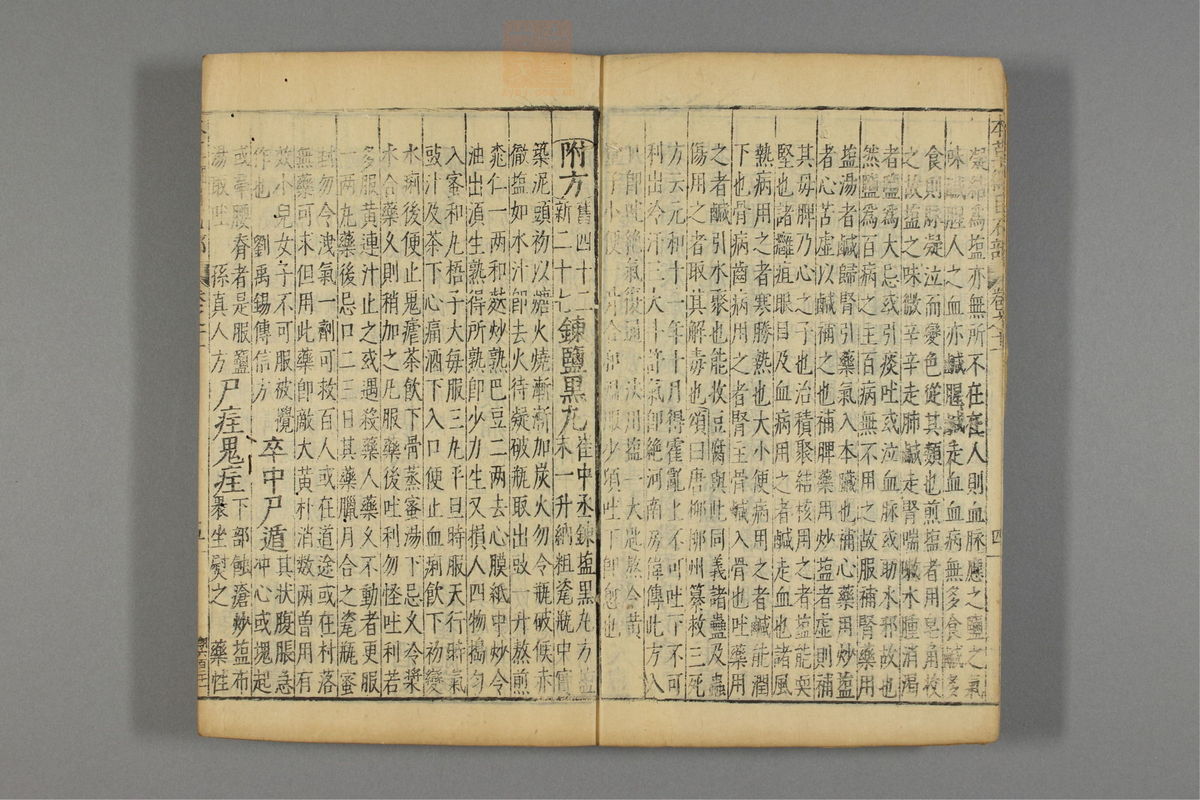 凝結爲塩亦無所不在在人則血脉應之鹽之氣
味鹹腥人之血亦鹹腥鹹走血血病無多食鹹多
食則脉凝泣而變色從其類也煎塩者用皂角收
之故塩之味微辛辛走肺鹹走腎喘嗽水腫消渴
者鹽爲大忌或引痰吐或泣血脉或助水邪故也
然鹽爲百病之主百病無不用之故服補腎藥用
塩湯者鹹歸腎引藥氣入本臟也補心藥用炒塩
者心苦虛以鹹補之也補脾藥用炒塩者虛則補
其母脾乃心之子也治積聚結核用之者塩能耎
堅也諸癰疽眼目及血病用之者鹹走血也諸風
熱病用之者寒勝熱也大小便病用之者鹹能潤
下也骨病齒病用之者腎主骨鹹入骨也吐藥用
之者鹹引水聚也能收豆腐與此同義諸蠱及蟲
傷用之者取其解毒也頌曰唐柳柳州纂救三死
方云元和十一年十月得霍亂上不可吐下不可
利出冷汗三大斗許氣即絶河南房偉傳此方入
口即吐絶氣復通其法用塩一大匙熬令黃
童子小便一升合和温服少頃吐下即愈也
附方舊四十二新二十七鍊鹽黑丸崔中丞鍊塩黑丸方塩末一升納粗瓷瓶中實
築泥頭初以煻火燒漸漸加炭火勿令瓶破候赤
徹塩如水汁卽去火待凝破瓶取出豉一升熬煎
桃仁一兩和麩炒熟巴豆二兩去心膜紙中炒令
油出湏生熟得所熟卽少力生又損人四物搗勻
入蜜和丸梧子大每服三丸平旦時服天行時氣
豉汁及茶下心痛酒下入口便止血痢飲下初變
水痢後便止鬼瘧茶飲下骨蒸蜜湯下忌乂冷漿
水合藥久則稍加之凡服藥後吐利勿怪吐利若
多服黃連汁止之或遇殺藥人藥久不動者更服
一兩丸藥後忌口二三日其藥臘月合之瓷瓶蜜
封勿令洩氣一劑可救百人或在道途或在村落
無藥可求但用此藥卽敵大黃朴消數兩曾用有
效小兒女子不可服被攪作也劉禹錫傳信方卒中尸遁其狀腹脹急冲心或塊起
或牽腰脊者是服鹽湯取吐孫真人方尸疰鬼疰下部蝕瘡炒塩布裹坐熨之藥性